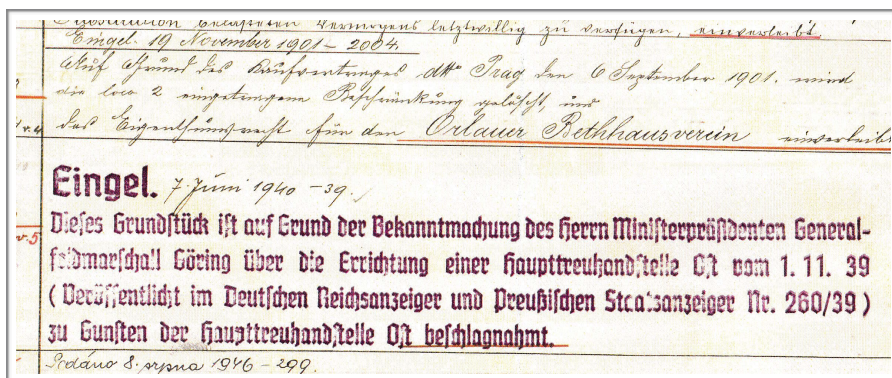 Substitution belasteten Vermögens letztwillig zu verfügen, einverleibt
Eingel. 19 November 1901 – 2004.
Auf Grund des Kaufvertrages dtto Prag den 6 September 1901. wird
die loco 2 eingetragene Beschränkung gelöscht, und
v. 4 das Eigenthumsrecht für den Orlauer Bethhausverein einverleibt
Eingel. 7. Juni 1940 – 39.
Dieses Grundstück ist auf Grund der Bekanntmachung des Herrn Ministerpräsidenten General-
v. 5 feldmarschall Göring über die Errichtung einer Haupttreuhandstelle Ost vom 1. 11. 39
( Veröffentlicht im Deutschen Reichsanzeiger und Preußischen Staatsanzeiger Nr. 260/39 )
zu Gunsten der Haupttreuhandstelle Ost beschlagnahmt.
Podáno 8. srpna 1946 – 299.